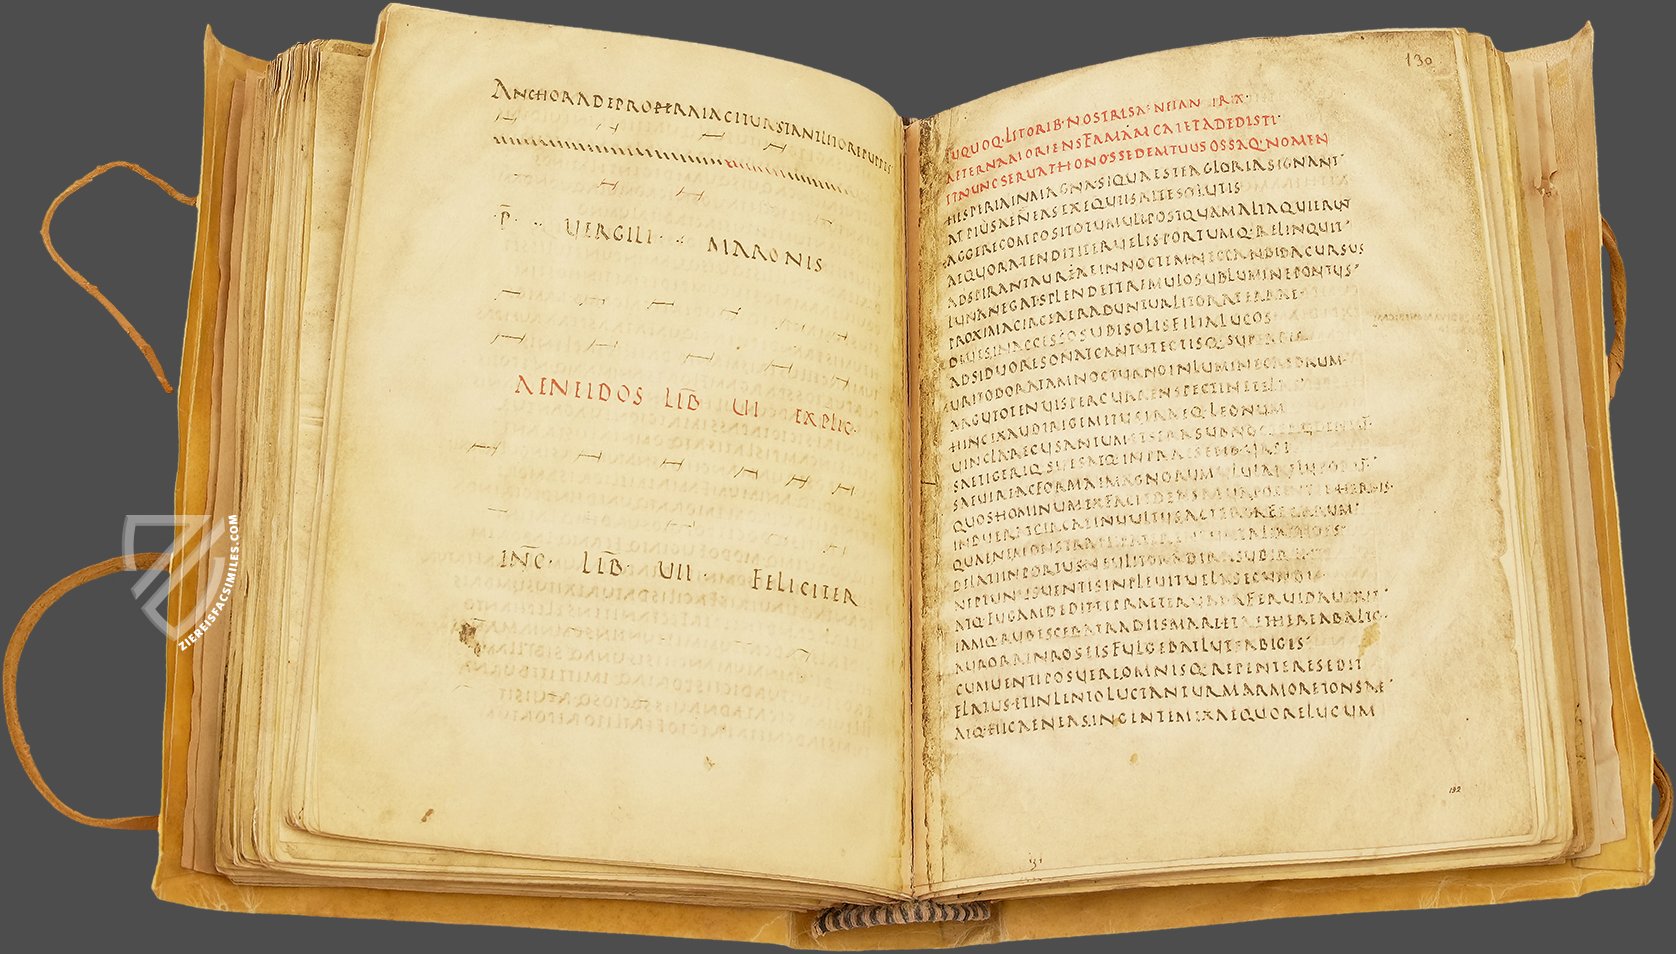 ANCHORADEPRORAIACITURSTANTLITOREPUPPES
·P̄· UERGILI MARONIS
AENEIDOS LIB̄ UI EXPLIC·
INC̄· LIB̄ UII· FELICITER
130
TUQUOQ·LITORIB·NOSTRISAENEIANUTRIX·
AETERNAMORIENSFAMAMCAIETADEDISTI·
ETNUNCSERUATHONOSSEDEMTUUSOSSAQ·NOMEN
HESPERIAINMAGNASIQUAESTEAGLORIASIGNANT
ATPIUSAENEASEXEQUIISRITESOLUTIS
AGGERECOMPOSITOTUMULIPOSTQUAMALTAQUIERUNT
AEQUORATENDITITERUELISPORTUMQ·RELINQUIT
ADSPIRANTAURAEINNOCTEMNECCANDIDACURSUS
LUNANEGATSPLENDETTREMULOSUBLUMINEPONTUS
PROXIMACIRCAEAERADUNTURLITORATERRAE
DIUESINACCESSOSUBISOLISFILIALUCOS
ADSIDUORESONATCANTUTECTISQ·SUPERBIS
URITODORATAMNOCTURNOINLUMINECAEDRUM
ARGUTOTENUISPERCURRENSPECTINETELAS
HINCEXAUDIRIGEMITUSIRAEQ·LEONUM
UINCLARECUSANTUMETSERASUBNOCTERUDENTUM
SAETIGERIQ·SUESATQ·INPRAESEPIBUSURSI
SAEUIREACFORMAEMAGNORUMULULARELUPORUM
QUOSHOMINUMEXFACIEDEASAEUAPOTENTIBHERBIS
INDUERATCIRCEINUULTUSACTERGAFERARUM
QUAENEMONSTRAPATERENTURTALIAPIITROES
DELATIINPORTUSNEULITORADIRASUBIRENT
NEPTUNUSUENTISINPLEUITUELASECUNDIS
ATQ·FUGAMDEDITETPRAETERUADAFERUIDAUEXIT
IAMQ·RUBESCEBATRADIISMAREETAETHEREABALTO
AURORAINROSEISFULGEBATLUTEABIGIS
CUMUENTIPOSUEREOMNISQ·REPENTERESEDIT
FLATUSETINLENTOLUCTANTURMARMORETONSAE
ATQ·HICAENEASINGENTEMEXAEQUORELUCUM
192
ZIEREISFACSIMILES.COM